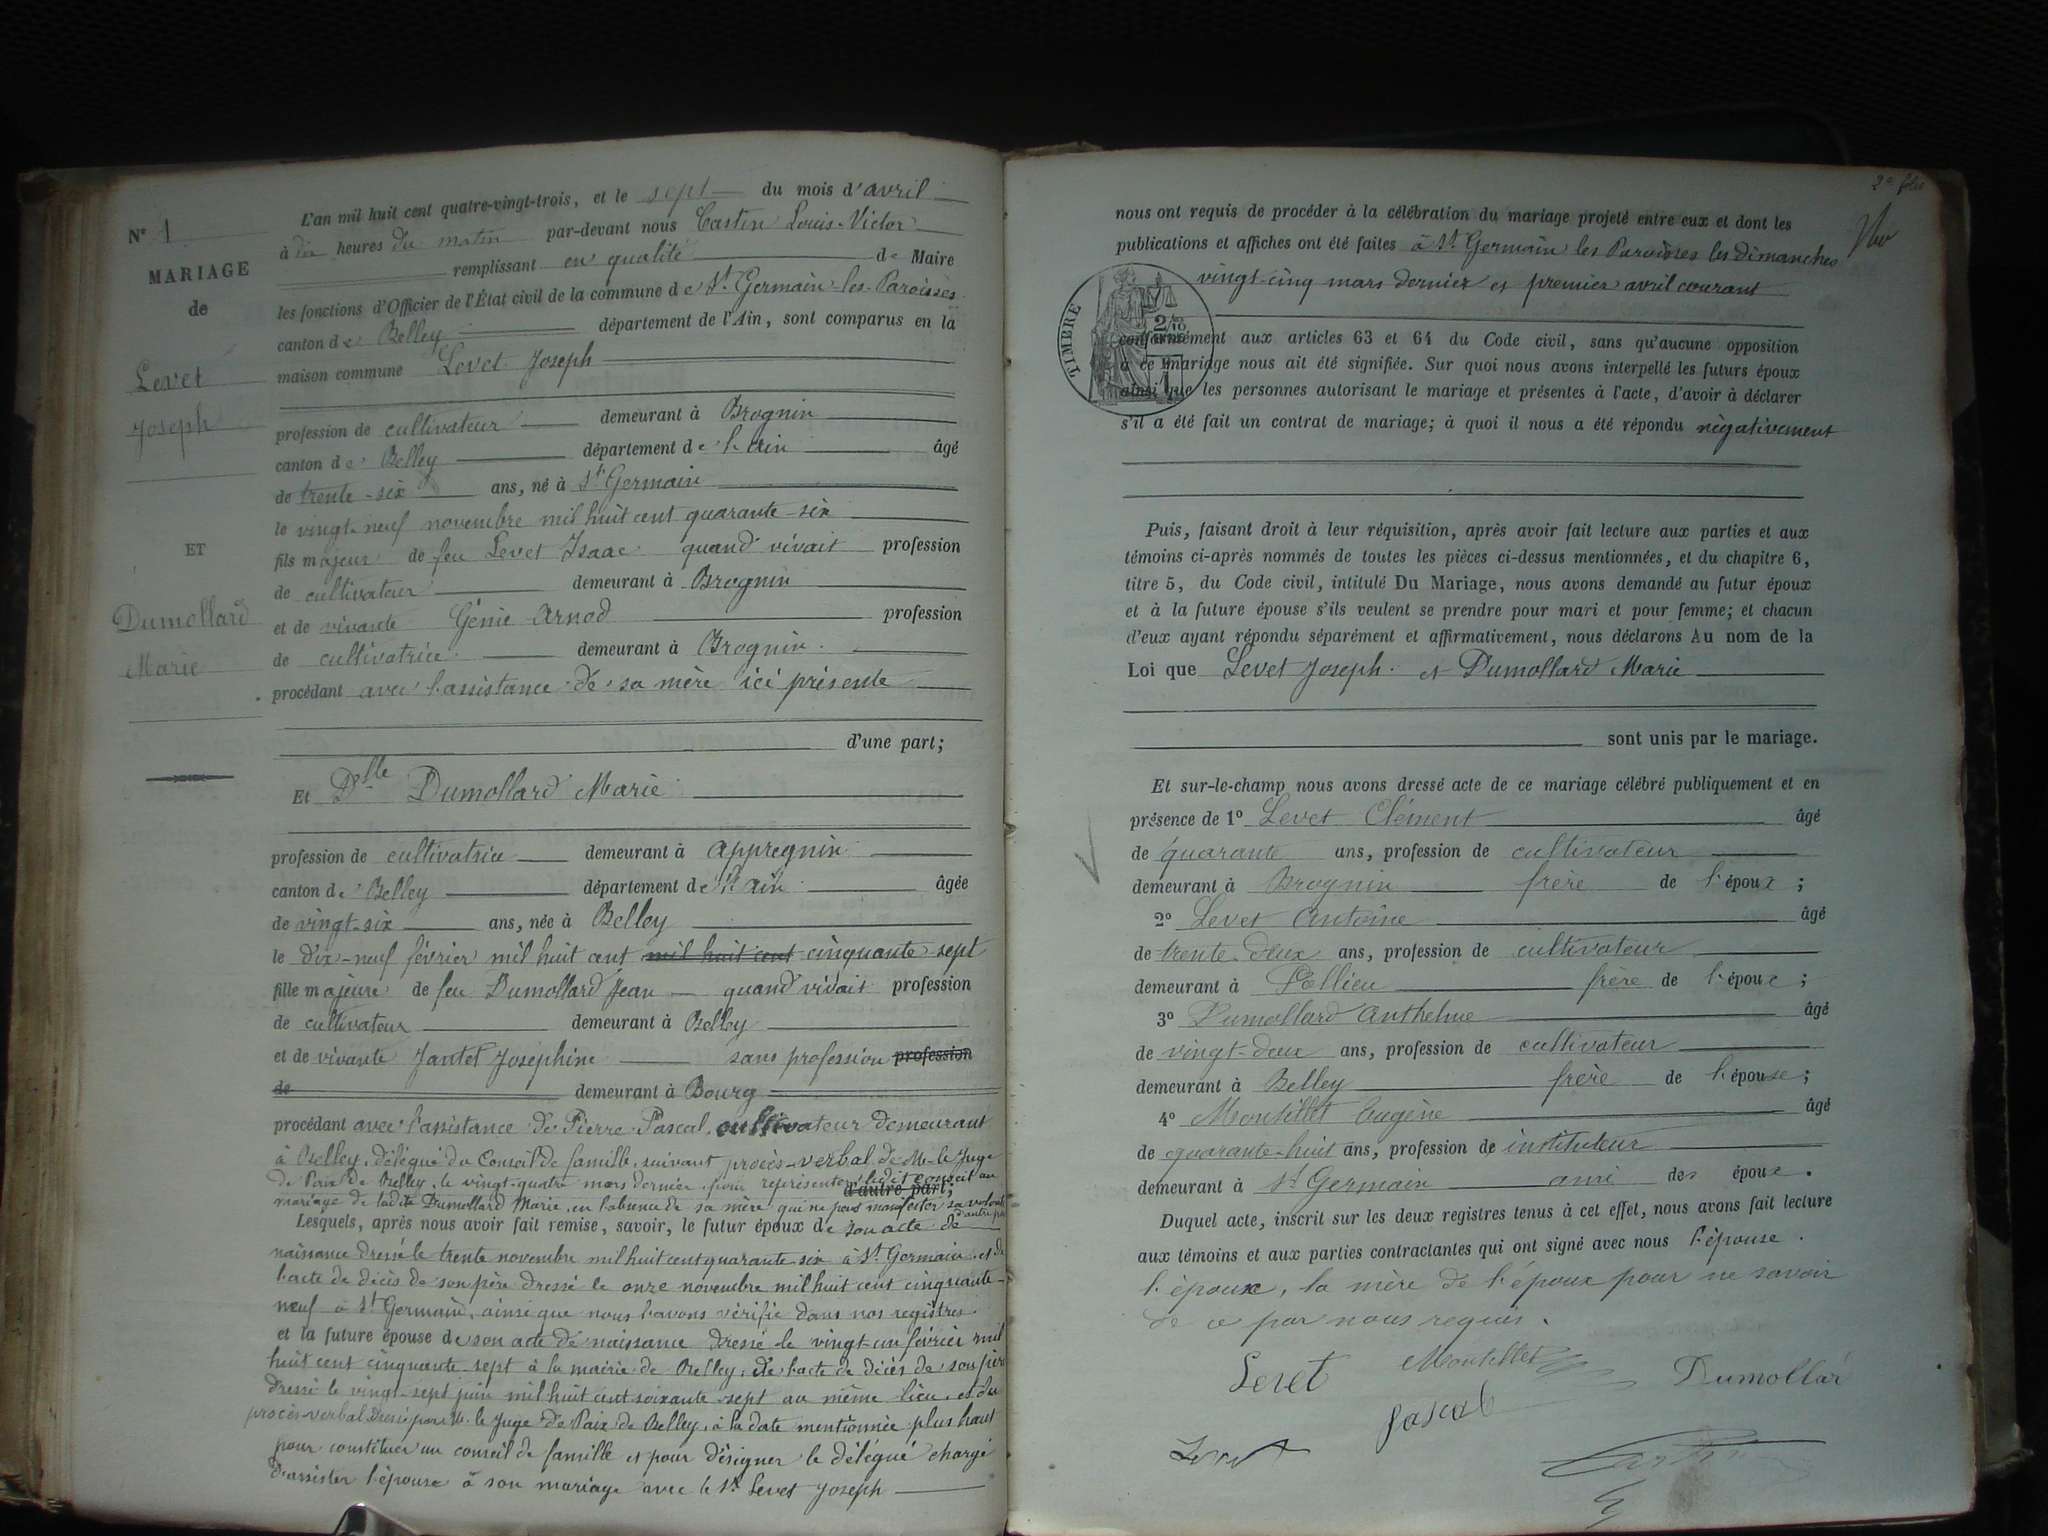 Nº 1
MARIAGE
de
Levet
Joseph
ET
Dumollard
Marie
L'an mil huit cent quatre-vingt-trois, et le sept du mois d'avril
à dix heures du matin par-devant nous Castin Louis-Victor
remplissant en qualité de Maire
les fonctions d'Officier de l'État civil de la commune de St Germain-les-Paroisses
canton de Belley département de l'Ain, sont comparus en la
maison commune Levet Joseph
profession de cultivateur demeurant à Brognin
canton de Belley département de l'ain âgé
de trente-six ans, né à St Germain
le vingt-neuf novembre mil huit cent quarante-six
fils majeur de feu Levet Isaac quand vivait profession
de cultivateur demeurant à Brognin
et de vivante Génie Arnod profession
de cultivatrice demeurant à Brognin
procédant avec l'assistance de sa mère ici présente
d'une part;
Et Dlle Dumollard Marie
profession de cultivatrice demeurant à Appregnin
canton de Belley département de l'Ain âgée
de vingt-six ans, née à Belley
le dix-neuf février mil huit cent mil huit cent cinquante-sept
fille majeure de feu Dumollard Jean quand vivait profession
de cultivateur demeurant à Belley
et de vivante Jantet Joséphine sans profession profession
de demeurant à Bourg
procédant avec l'assistance de Pierre Pascal, cultivateur demeurant
à Belley, délégué du Conseil de famille, suivant procès-verbal de Mr le Juge
de Paix de Belley, le vingt-quatre mars dernier, pour représenter ledit conseil au
d'autre part;
mariage de ladite Dumollard Marie, en l'absence de sa mère qui ne peut manifester sa volonté
d'autre part
Lesquels, après nous avoir fait remise, savoir, le futur époux de son acte de
naissance dressé le trente novembre mil huit cent quarante six à St Germain, et de
l'acte de décès de son père dressé le onze novembre mil huit cent cinquante-
neuf à St Germain, ainsi que nous l'avons vérifié dans nos registres
et la future épouse de son acte de naissance dressé le vingt-un février mil
huit cent cinquante-sept à la mairie de Belley, de l'acte de décès de son père
dressé le vingt-sept juin mil huit cent soixante-sept au même lieu, et du
procès-verbal dressé par M. le Juge de Paix de Belley, à la date mentionnée plus haut
pour constituer un conseil de famille et pour désigner le délégué chargé
d'assister l'épouse à son mariage avec le Sr Levet Joseph
2e folio
nous ont requis de procéder à la célébration du mariage projeté entre eux et dont les
publications et affiches ont été faites à St Germain les Paroisses les dimanches
vingt-cinq mars dernier et premier avril courant
TIMBRE
2/10
conformément aux articles 63 et 64 du Code civil, sans qu'aucune opposition
à ce mariage nous ait été signifiée. Sur quoi nous avons interpellé les futurs époux
ainsi que les personnes autorisant le mariage et présentes à l'acte, d'avoir à déclarer
s'il a été fait un contrat de mariage; à quoi il nous a été répondu négativement
Puis, faisant droit à leur réquisition, après avoir fait lecture aux parties et aux
témoins ci-après nommés de toutes les pièces ci-dessus mentionnées, et du chapitre 6,
titre 5, du Code civil, intitulé Du Mariage, nous avons demandé au futur époux
et à la future épouse s'ils veulent se prendre pour mari et pour femme; et chacun
d'eux ayant répondu séparément et affirmativement, nous déclarons Au nom de la
Loi que Levet Joseph et Dumollard Marie
sont unis par le mariage.
Et sur-le-champ nous avons dressé acte de ce mariage célébré publiquement et en
présence de 1º Levet Clément âgé
de quarante ans, profession de cultivateur
demeurant à Brognin frère de l'époux;
2º Levet Antoine âgé
de trente-deux ans, profession de cultivateur
demeurant à Pollieu frère de l'époux;
3º Dumollard Anthelme âgé
de vingt-deux ans, profession de cultivateur
demeurant à Belley frère de l'épouse;
4º Montillet Eugène âgé
de quarante-huit ans, profession de instituteur
demeurant à St Germain ami des époux.
Duquel acte, inscrit sur les deux registres tenus à cet effet, nous avons fait lecture
aux témoins et aux parties contractantes qui ont signé avec nous l'épouse.
l'époux, la mère de l'époux pour ne savoir
de ce par nous requis.
Levet Montillet Dumollar
Pascal
Levet Castin